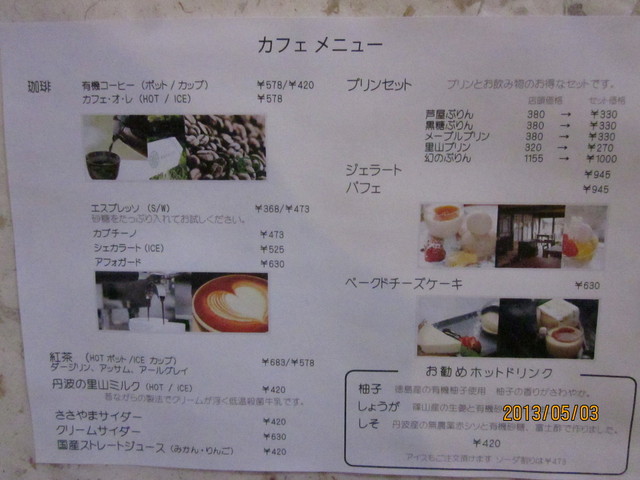 カフェ メニュー
珈琲 有機コーヒー (ポット / カップ) ¥578/¥420
カフェ・オ・レ (HOT / ICE) ¥578
エスプレッソ (S/W) ¥368/¥473
砂糖をたっぷり入れてお試しください。
カプチーノ ¥473
シェカラート (ICE) ¥525
アフォガード ¥630
紅茶 (HOT ポット/ICE カップ) ¥683/¥578
ダージリン、アッサム、アールグレイ
丹波の里山ミルク (HOT / ICE) ¥420
昔ながらの製法でクリームが浮く低温殺菌牛乳です。
ささやまサイダー ¥420
クリームサイダー ¥630
国産ストレートジュース (みかん・りんご) ¥420
プリンセット プリンとお飲み物のお得なセットです。
店頭価格 セット価格
芦屋ぷりん 380 → ¥330
黒糖ぷりん 380 → ¥330
メープルプリン 380 → ¥330
里山プリン 320 → ¥270
幻のぷりん 1155 → ¥1000
ジェラート ¥945
パフェ ¥945
ベークドチーズケーキ ¥630
お勧めホットドリンク
柚子 徳島産の有機柚子使用 柚子の香りがさわやか。
しょうが 篠山産の生姜と有機砂糖
しそ 丹波産の無農薬赤シソと有機砂糖、富士酢で作りました。
¥420
アイスもご注文頂けます ソーダ割りは¥473
2013/05/03